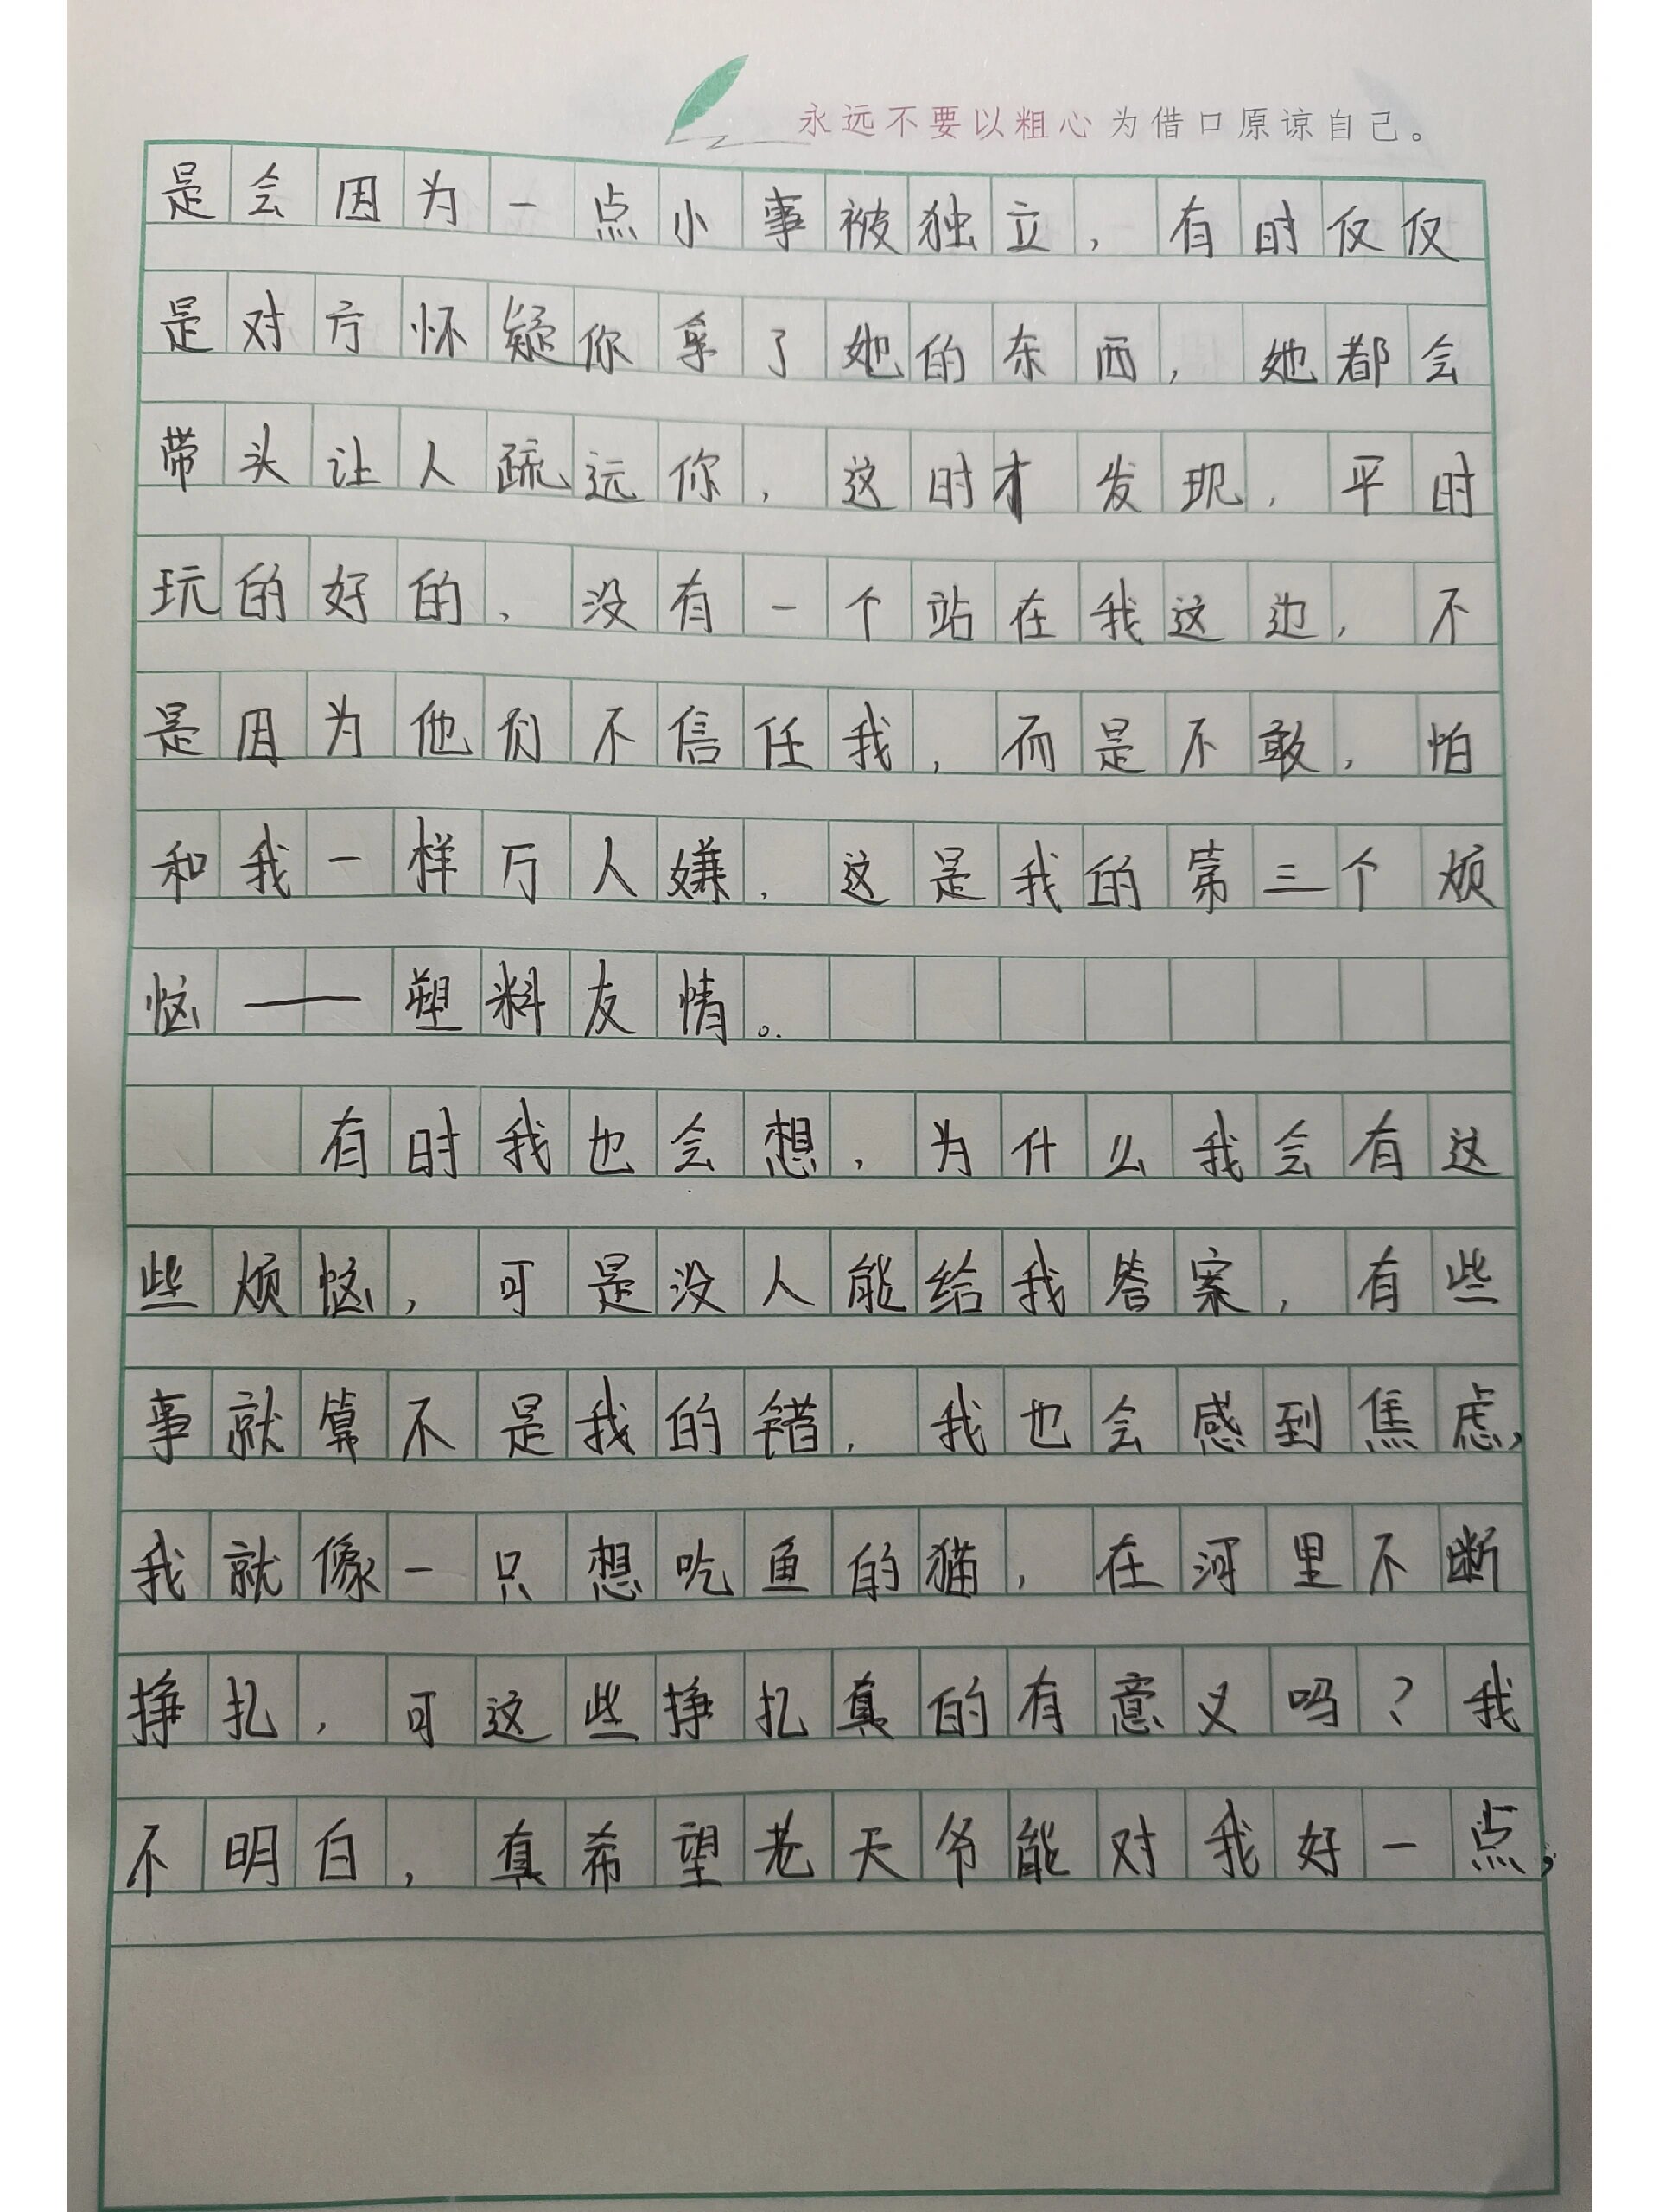 永远不要以粗心为借口原谅自己。
是会因为一点小事被独立，有时仅仅
是对方怀疑你拿了她的东西，她都会
带头让人疏远你，这时才发现，平时
玩的好的，没有一个站在我这边，不
是因为他们不信任我，而是不敢，怕
和我一样万人嫌，这是我的第三个烦
恼——塑料友情。
有时我也会想，为什么我会有这
些烦恼，可是没人能给我答案，有些
事就算不是我的错，我也会感到焦虑，
我就像一只想吃鱼的猫，在河里不断
挣扎，可这些挣扎真的有意义吗？我
不明白，真希望老天爷能对我好一点，